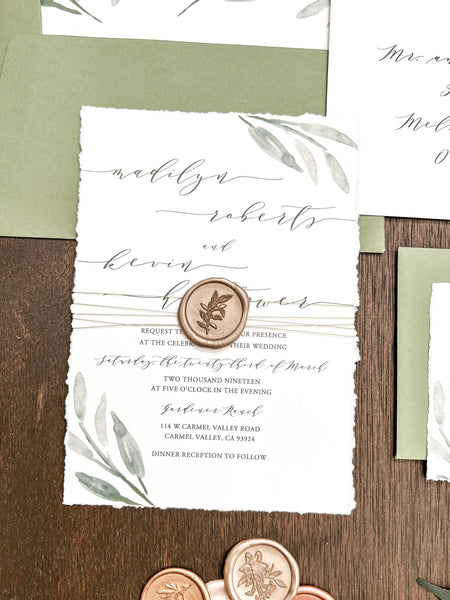 Mr. an
Mel
O
madilyn
roberts
and
kevin
REQUEST THE PRESENCE
AT THE CELEBR THEIR WEDDING
Saturday, the twenty third of March
TWO THOUSAND NINETEEN
AT FIVE O'CLOCK IN THE EVENING
Gardener Ranch
114 W CARMEL VALLEY ROAD
CARMEL VALLEY, CA 93924
DINNER RECEPTION TO FOLLOW